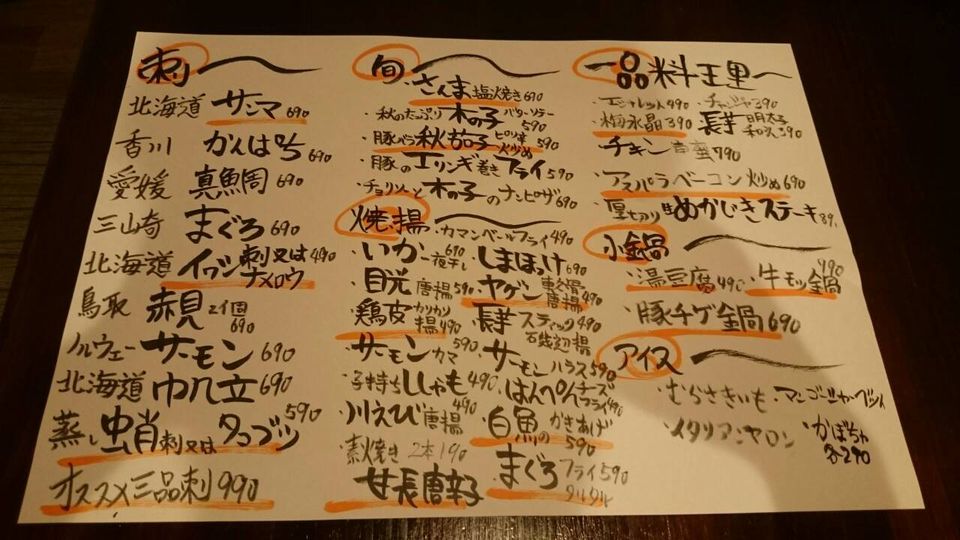 刺
北海道 サンマ 690
香川 かんぱち 690
愛媛 真鯛 690
三崎 まぐろ 690
北海道 イワシ 刺又は ナメロウ 490
鳥取 赤貝 2個 690
ノルウェー サーモン 690
北海道 帆立 690
蒸し蛸 刺又は タコブツ 590
オススメ三品刺 990
旬
・さんま 塩焼き 690
秋のたっぷり 木の子 バターソテー 590
・豚バラ 秋茄子 ピリ辛 炒め 590
・豚のエリンギ巻きフライ 590
・チョリソーと木の子のナンピザ 690
焼・揚
・カマンベールフライ 490
・いか 一夜干し 690
・しまほっけ 690
・目光 唐揚 590
・ヤゲン 軟骨 唐揚 490
・鶏皮 カリカリ 揚 490
・長芋 スティック 磯辺揚 490
・サーモンカマ 590
・サーモンハラス 590
・子持ちししゃも 490
・はんぺんチーズ フライ 490
・川えび 唐揚
・白魚の かきあげ 590
素焼き 2本190
甘長唐辛子
・まぐろ フライ 590 タルタル
一品料理
・チャンジャ 390
・梅水晶 390
・長芋 明太子 和え 390
・チキン南蛮 790
・アスパラベーコン炒め 690
・厚切りめかじきステーキ
小鍋
・湯豆腐 490
・牛モツ鍋 990
・豚チゲ鍋 690
アイス
・むらさきいも
・イタリアンマロン
・かぼちゃ
各290